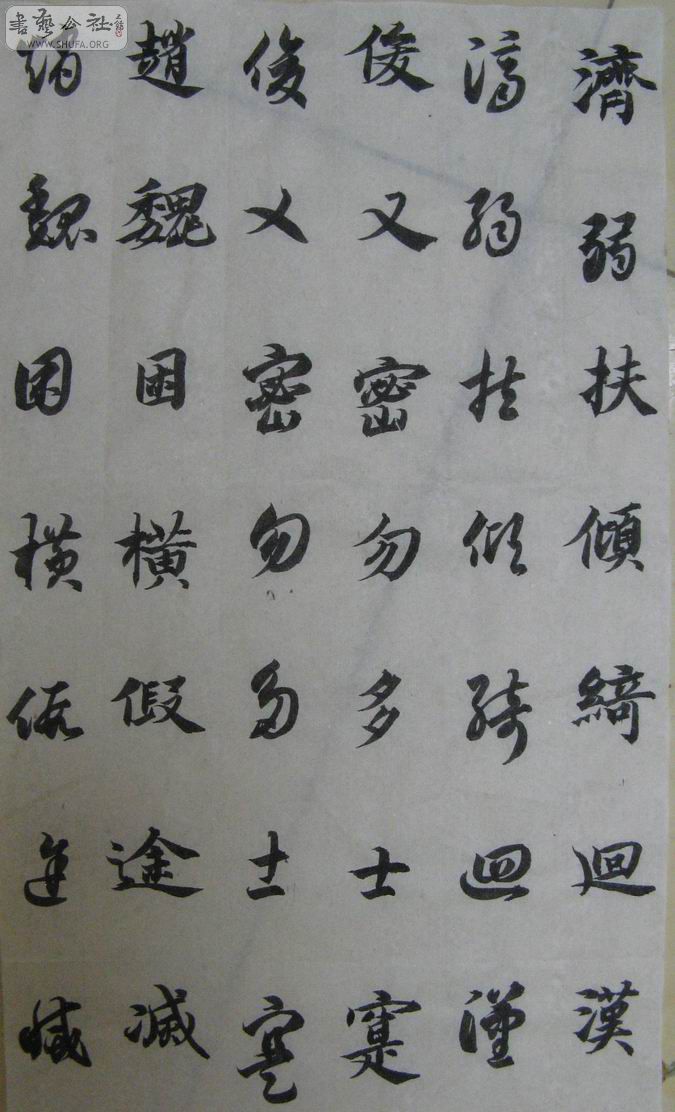 濟弱扶傾綺迴漢
濟弱扶傾綺迴漢
俊乂密勿多士寔
俊乂密勿多士寔
趙魏困橫假途滅
趙魏困橫假途滅
書藝公社
WWW.SHUFA.ORG